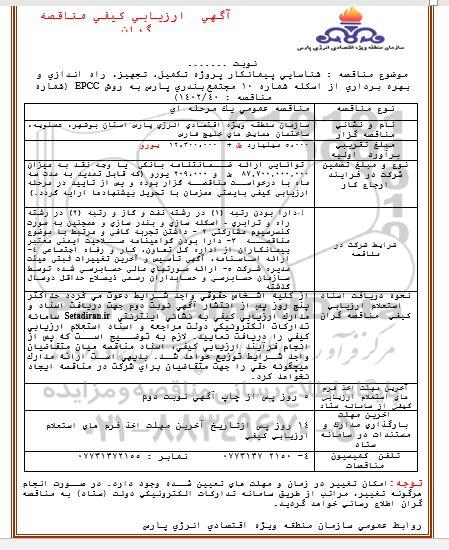 آگهي ارزيابي كيفي مناقصه
گران
سازمان منطقه ویژه اقتصادی انرژی پارس
نوبت -------
موضوع مناقصه : شناسايي پيمانكار پروژه تكميل، تجهيز، راه اندازي و
بهره برداري از اسكله شماره ۱۰ مجتمع بندري پارس به روش EPCC (شماره
مناقصه : ۱۴۰۲/۴۰)
نوع مناقصه
مناقصه عمومي يك مرحله اي
نام و نشاني
مناقصه گزار
سازمان منطقه ويژه اقتصادي انرژي پارس استان بوشهر، عسلويه،
ساختمان همايش هاي خليج فارس
مبلغ تقريبي
برآورد اوليه
۵،۰۰۰ ميليارد ريال + ۱۲،۳۰۰،۰۰۰ يورو
نوع و مبلغ تضمين
شركت در فرايند
ارجاع كار
توانايي ارائه ضمانتنامه بانكي يا وجه نقد به ميزان
۸۷,۷۰۰,۰۰۰,۰۰۰ ريال + ۲۰۹,۰۰۰ يورو (كه قابل تمديد به مدت سه
ماه با درخواست مناقصه گزار بوده و پس از تاييد در مرحله
ارزيابي كيفي بايستي همزمان با تحويل پيشنهادها ارايه گردد.)
شرايط شركت در
مناقصه
۱-دارا بودن رتبه (۱) در رشته نفت و گاز و رتبه (۲) در رشته
راه و ترابري - اسكله سازي و بندر سازي و همچنين به صورت
كنسرسيوم مشاركتي ۲ - داشتن تجربه كافي و مرتبط با موضوع
مناقصه ۳- دارا بودن گواهينامه صلاحيت ايمني معتبر
پيمانكاران از اداره كل تعاون، كار و رفاه اجتماعي ۴-
ارائه اساسنامه، آگهي تأسيس و آخرين تغييرات ثبتي هيئت
مديره شركت ۵- ارائه صورتهاي مالي حسابرسي شده توسط
سازمان حسابرسي و حسابداران رسمي ذيصلاح حداقل دوسال
گذشته
نحوه دريافت اسناد
استعلام ارزيابي
كيفي مناقصه گران
از كليه اشخاص حقوقي واجد شرايط دعوت مي گردد حداكثر
پنج روز پس از انتشار آگهي نوبت دوم جهت دريافت اسناد و
مدارك ارزيابي كيفي به نشاني اينترنتي Setadiran.ir سامانه
تداركات الكترونيكي دولت مراجعه و اسناد استعلام ارزيابي
كيفي را دريافت نمايند. لازم به توضيح است كه پس از
انجام فرآيند ارزيابي كيفي، اسناد مناقصه ميان متقاضيان
واجد شرايط توزيع خواهد شد. بديهي است ارائه مدارك
هيچگونه حقي را جهت متقاضيان براي شركت در مناقصه ايجاد
نخواهد كرد.
آخرين مهلت اخذ فرم
هاي استعلام ارزيابي
كيفي از سامانه ستاد
۵ روز پس از چاپ آگهي نوبت دوم
آخرين مهلت
بارگذاري مدارك و
مستندات در سامانه
ستاد
۱۴ روز پس ازتاريخ آخرين مهلت اخذ فرم هاي استعلام
ارزيابي كيفي
تلفن كميسيون
مناقصات
۴- ۲۱۵۰ ۰۷۷۳۱۳۷ نمابر : ۰۷۷۳۱۳۷۲۱۵۵
توجه: امكان تغيير در زمان و مهلت هاي تعيين شده وجود دارد. در صورت انجام
هرگونه تغيير، مراتب از طريق سامانه تداركات الكترونيكي دولت (ستاد) به مناقصه
گران اطلاع رساني خواهد گرديد.
روابط عمومي سازمان منطقه ويژه اقتصادي انرژي پارس